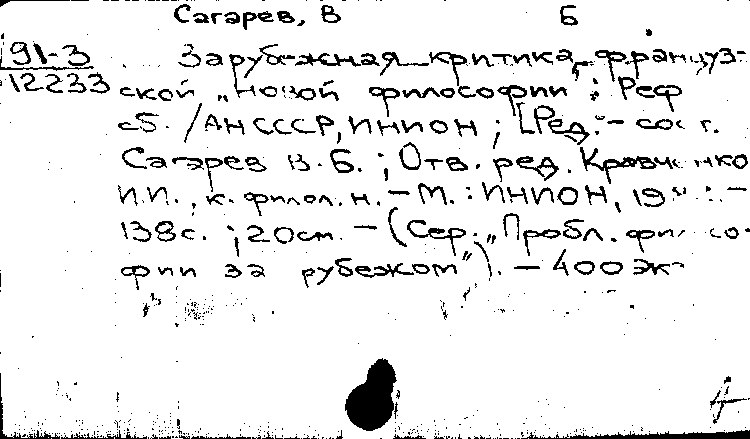 Сагарев, В Б
91-3 Зарубежная критика француз-
12233 ской „новой философии": Реф
сб. / АН СССР, ИНИОН; [Ред.-сост.
Сагарев В.Б.; Отв. ред. Кравченко
И.И., к. филол. н. - М.: ИНИОН,
138с.; 20см. - (Сер. „Пробл. филосо-
фии за рубежом"). - 400 эк